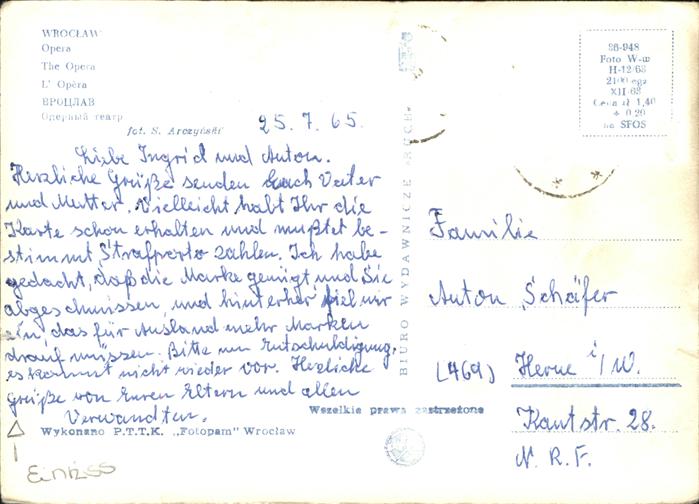 WROCŁAW
Opera
The Opera
L' Opéra
ВРОЦЛАВ
Оперный театр
fot. S. Arczyński
26-948
Foto W-w
H-12/63
2100 egz
XII-63
Cena zł 1,40
+ 0,20
na SFOS
25. 7. 65.
Liebe Ingrid und Anton.
Herzliche Grüße senden Euch Vater
und Mutter. Vielleicht habt Ihr die
Karte schon erhalten und mußtet be-
stimmt Strafporto zahlen. Ich habe
gedacht, daß die Marke genügt und sie
abgeschmissen, und hinterher fiel mir
ein, das für Ausland mehr Marken
drauf müssen. Bitte um Entschuldigung,
es kommt nicht wieder vor. Herzliche
Grüße von Euren Eltern und allen
Verwandten.
BIURO WYDAWNICZE „RUCH"
Familie
Anton Schäfer
(469) Herne i/W.
Kantstr. 28.
N. R. F.
Wszelkie prawa zastrzeżone
Wykonano P.T.T.K. „Fotopam" Wrocław